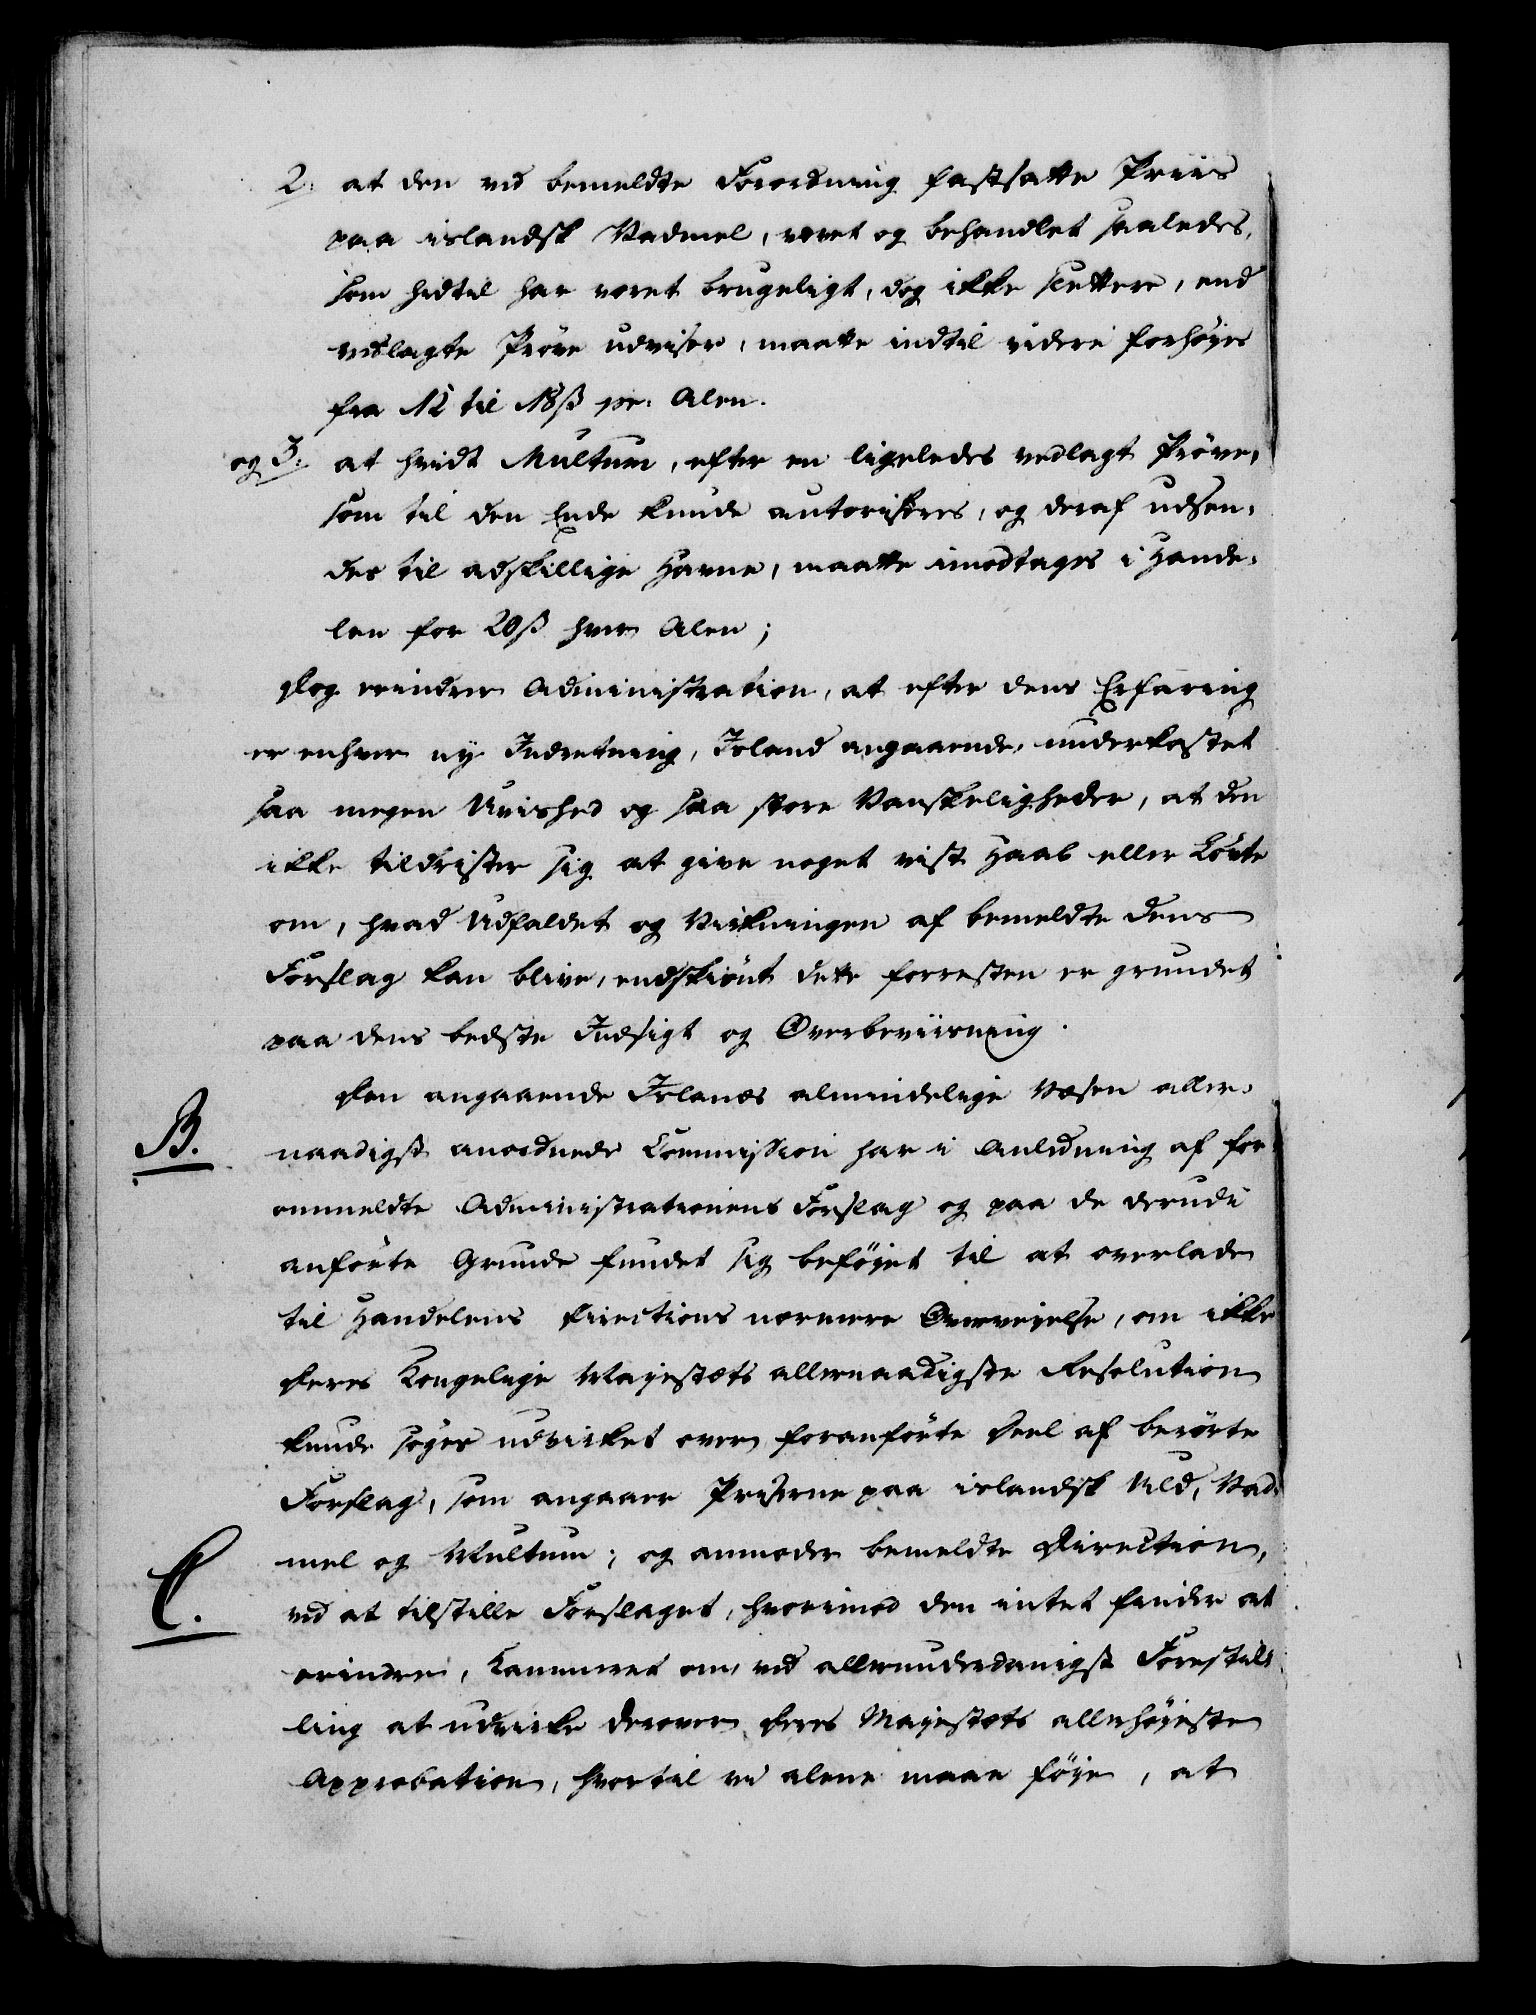 2. at den ved bemeldte Forordning fastsatte Priis
paa islandsk Vadmel, vævet og behandlet saaledes,
som hidtil har været brugeligt, dog ikke slettere, end
vedlagte Pröve udviser, maatte indtil videre forhöyes
fra 12 til 18 ß pr. Alen.
og 3. at hvidt Multum, efter en ligeledes vedlagt Pröve,
som til den Ende kunde autoriseres, og deraf udsen-
des til adskillige Havne, maatte imodtages i Hande-
len for 20 ß hver Alen;
Dog erindrer Administration, at efter dens Erfaring
er enhver ny Indretning, Island angaaende, underkastet
saa megen Uvished og saa store Vanskeligheder, at den
ikke tildrister sig at give noget vist Haab eller Löfte
om, hvad Udfaldet og Virkningen af bemeldte dens
Forslag kan blive, endskiönt dette forresten er grundet
paa dens bedste Indsigt og Overbeviisning.
Den angaaende Islands almindelige Væsen aller-
B. naadigst anordnede Commission har i Anledning af for-
ommeldte Administrationens Forslag og paa de derudi
anförte Grunde fundet sig beföyet til at overlade
til Handelens Directions nærmere Overveyelse, om ikke
Deres Kongelige Mayestæts allernaadigste Resolution
kunde söges udvirket over foranförte Deel af berörte
Forslag, som angaaer Priserne paa islandsk Uld, Vad-
C. mel og Multum; og anmoder bemeldte Direction,
ved at tilstille Forslaget, hvorimod den intet finder at
erindre, Kammeret om, ved allerunderdanigst Forestil-
ling at udvirke derover Deres Mayestæts allerhöyeste
Approbation, hvortil vi alene maae föye, at